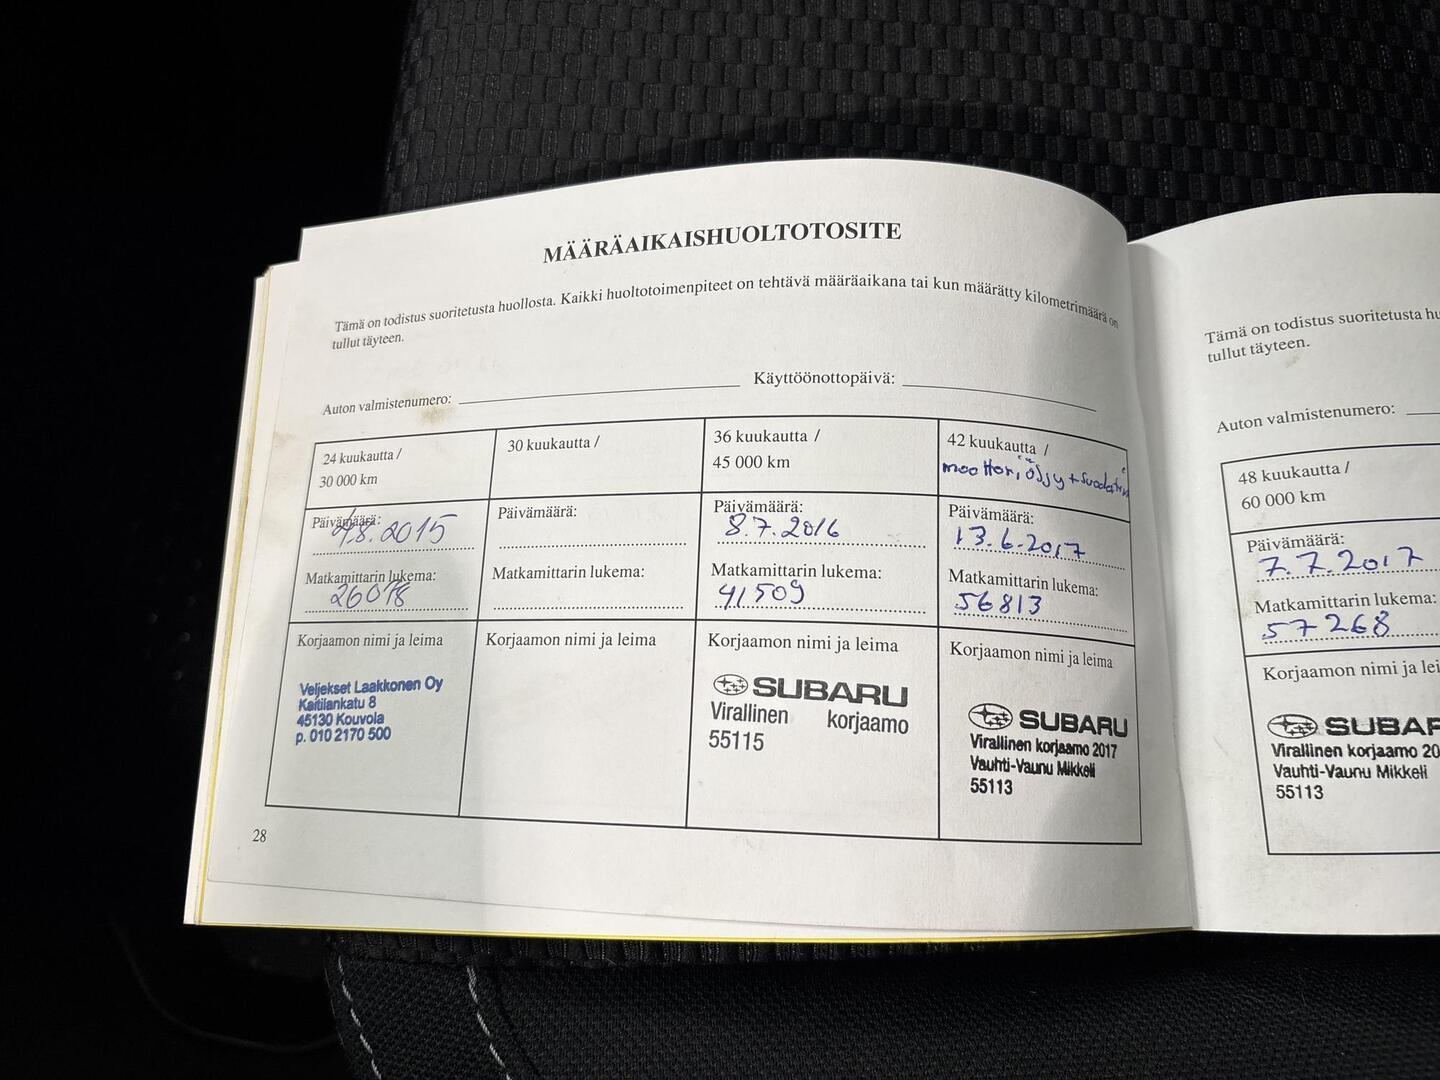 MÄÄRÄAIKAISHUOLTOTOSITE
Tämä on todistus suoritetusta huollosta. Kaikki huoltotoimenpiteet on tehtävä määräaikana tai kun määrätty kilometrimäärä on
tullut täyteen.
Auton valmistenumero: Käyttöönottopäivä:
24 kuukautta /
30 000 km
Päivämäärä:
4.8.2015
Matkamittarin lukema:
26078
Korjaamon nimi ja leima
Veljekset Laakkonen Oy
Kaitilankatu 8
45130 Kouvola
p. 010 2170 500
30 kuukautta /
Päivämäärä:
Matkamittarin lukema:
Korjaamon nimi ja leima
36 kuukautta /
45 000 km
Päivämäärä:
8.7.2016
Matkamittarin lukema:
41509
Korjaamon nimi ja leima
SUBARU
Virallinen korjaamo
55115
42 kuukautta /
moottoriöljy + suodatin
Päivämäärä:
13.6.2017
Matkamittarin lukema:
56813
Korjaamon nimi ja leima
SUBARU
Virallinen korjaamo 2017
Vauhti-Vaunu Mikkeli
55113
28
Tämä on todistus suoritetusta hu
tullut täyteen.
Auton valmistenumero:
48 kuukautta /
60 000 km
Päivämäärä:
7.7.2017
Matkamittarin lukema:
57268
Korjaamon nimi ja lei
SUBAR
Virallinen korjaamo 20
Vauhti-Vaunu Mikkeli
55113